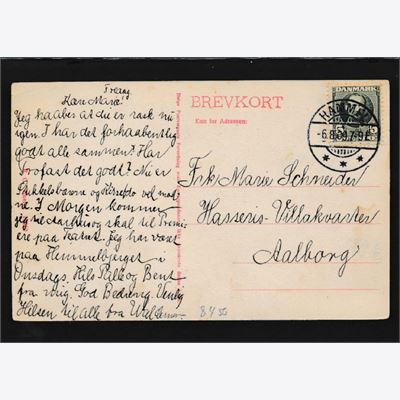 Fredag
Kære Marie!
Jeg haaber at du er rask nu
igen. I har det forhaabentlig
godt alle sammen? Har
Trofast det godt? Nu er
vel med
I Morgen kommer
jeg skal til Premi
ere paa Teatret. Jeg har været
paa Himmelbjerget i
Onsdags. Hils Palle og Bent
fra mig. God Bedring. Venlig
Hilsen til alle fra
BREVKORT
Kun for Adressen:
DANMARK
HAMMEL
-6.8.09.7-9E
Frk Marie Schneider
Hasseris-Villakvarter
Aalborg